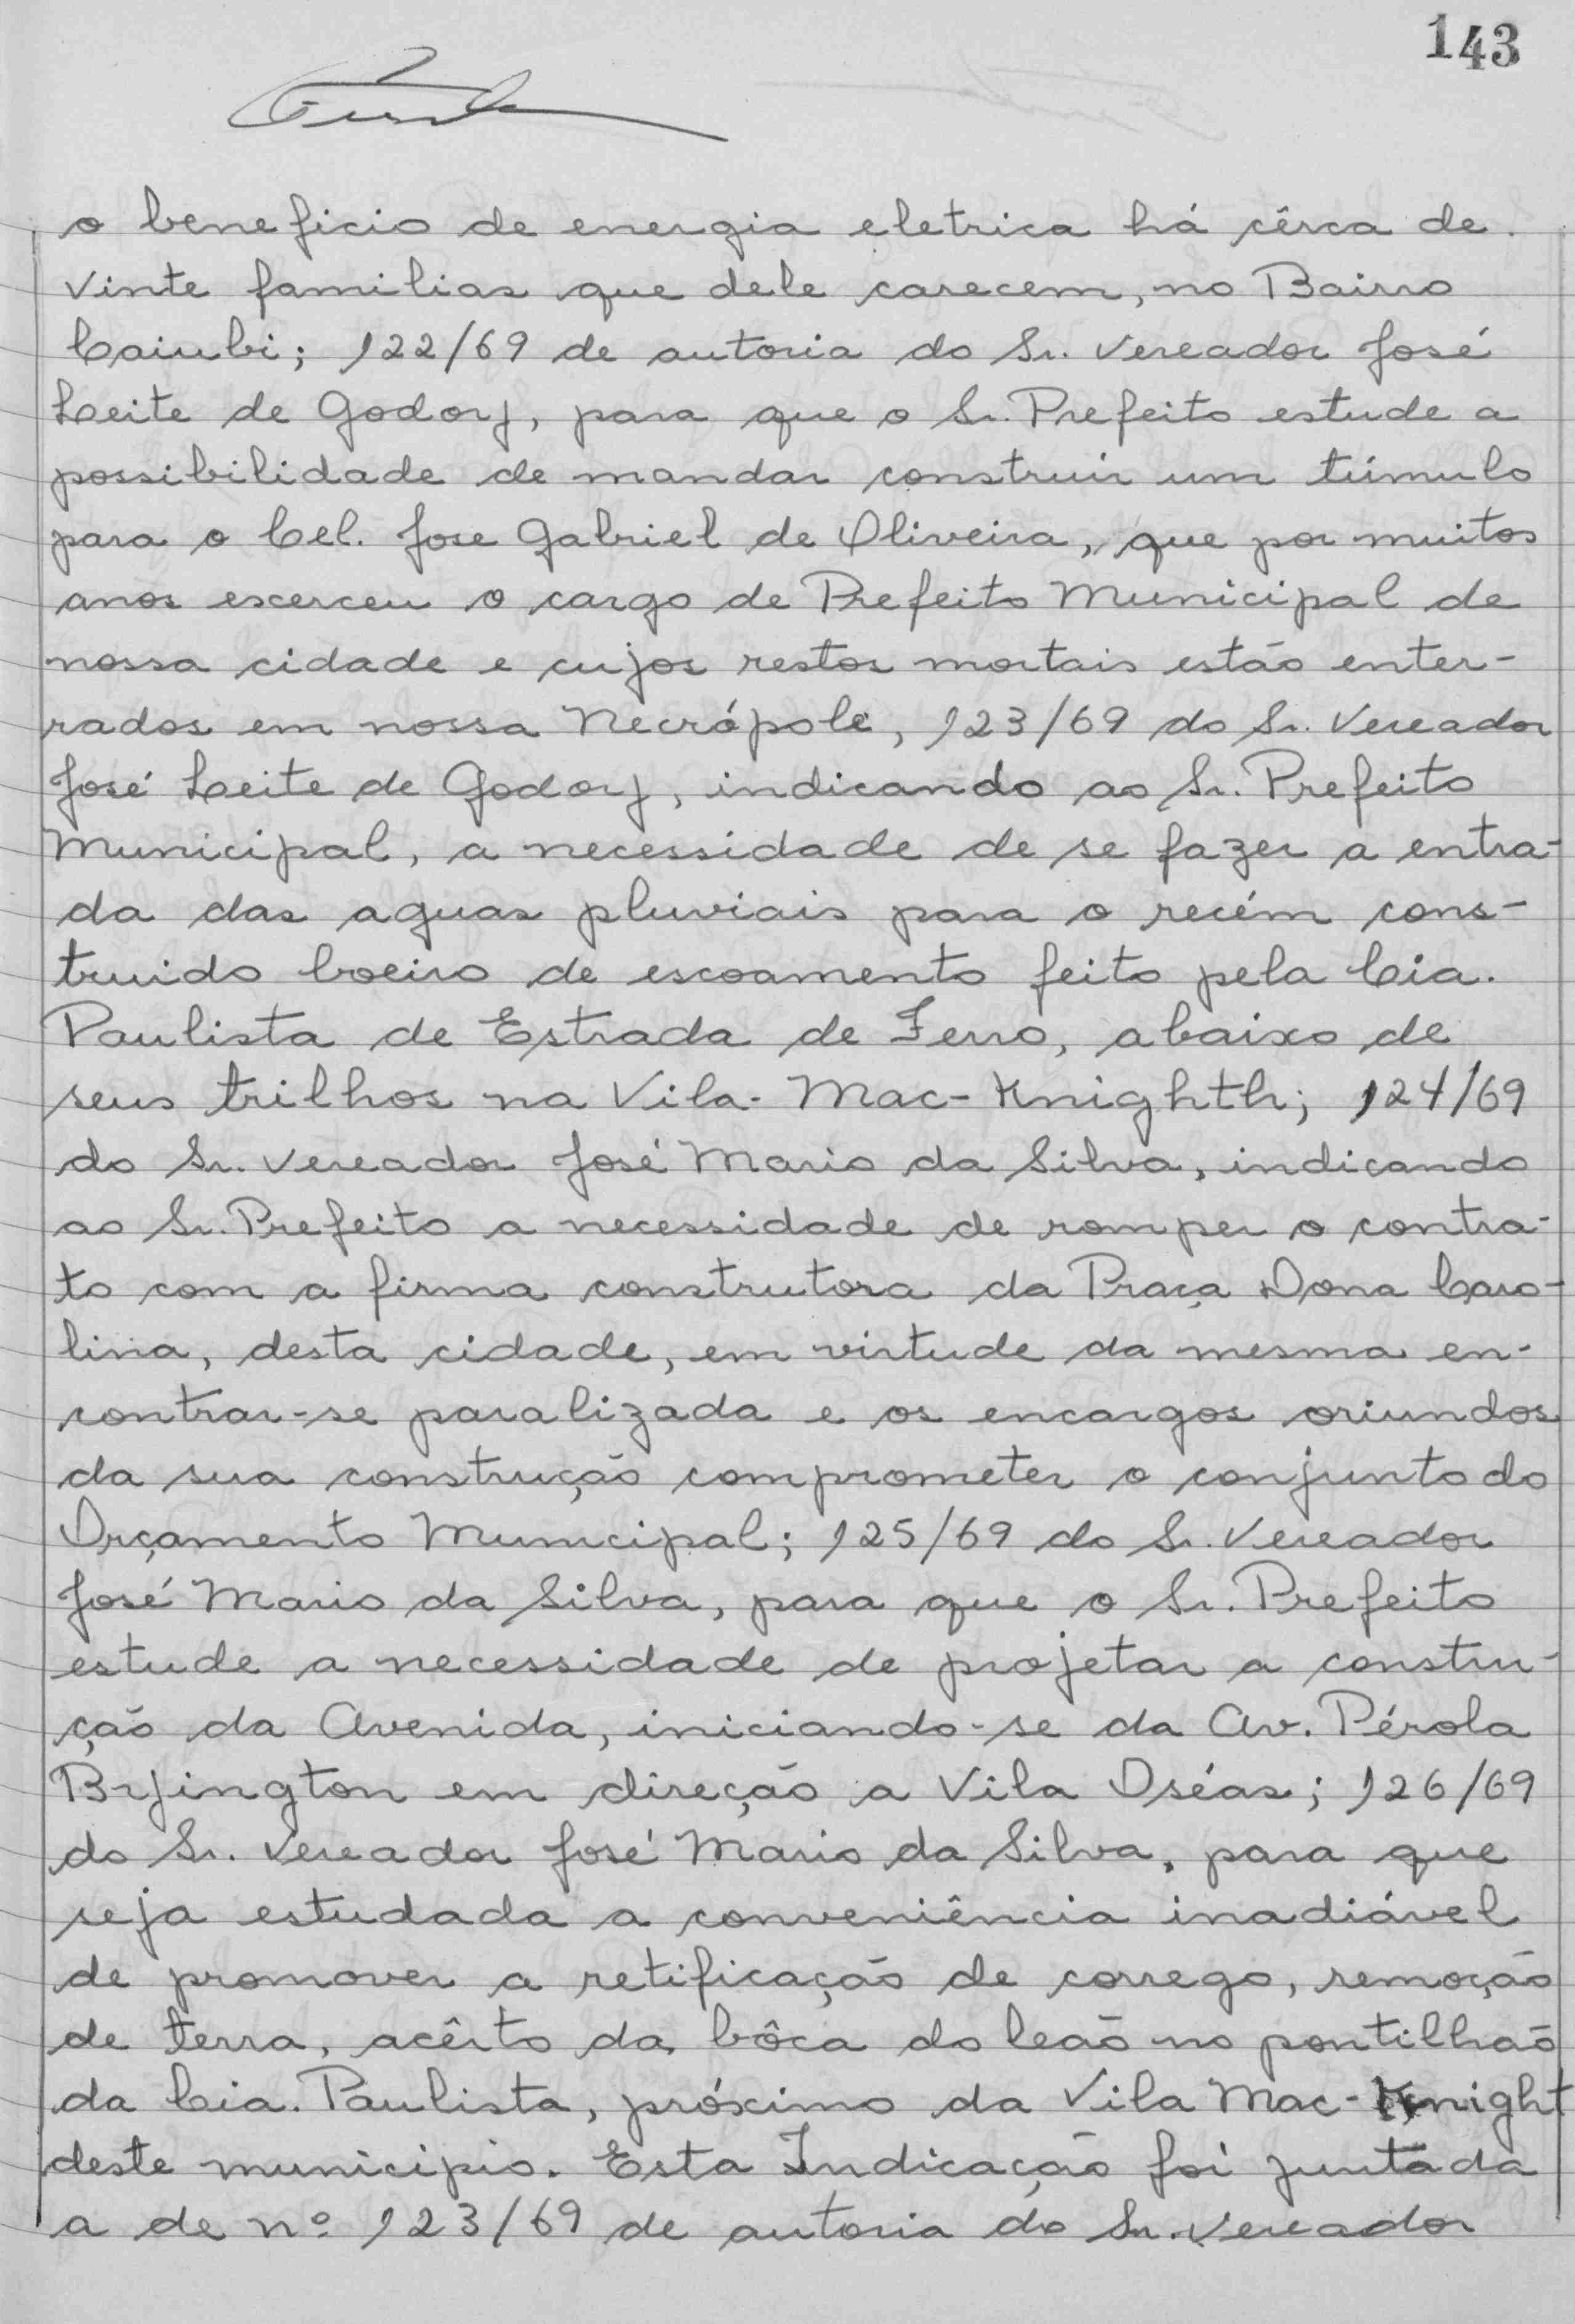 143
o beneficio de energia eletrica há cêrca de
vinte familias que dele carecem, no Bairro
Caiubi; 122/69 de autoria do Sr. Vereador José
Leite de Godoy, para que o Sr. Prefeito estude a
possibilidade de mandar construir um túmulo
para o Cel. Jose Gabriel de Oliveira, que por muitos
anos escerceu o cargo de Prefeito Municipal de
nossa cidade e cujos restos mortais estão enter-
rados em nossa Necrópole, 123/69 do Sr. Vereador
José Leite de Godoy, indicando ao Sr. Prefeito
Municipal, a necessidade de se fazer a entra-
da das aguas pluviais para o recém cons-
truido boeiro de escoamento feito pela Cia.
Paulista de Estrada de Ferro, abaixo de
seus trilhos na Vila- Mac-Knighth; 124/69
do Sr. Vereador José Mario da Silva, indicando
ao Sr. Prefeito a necessidade de romper o contra-
to com a firma construtora da Praça Dona Caro-
lina, desta cidade, em virtude da mesma en-
contrar-se paralizada e os encargos oriundos
da sua construção comprometer o conjunto do
Orçamento Municipal; 125/69 do Sr. Vereador
José Mario da Silva, para que o Sr. Prefeito
estude a necessidade de projetar a constru-
ção da Avenida, iniciando-se da Av. Pérola
Byington em direção a Vila Oséas; 126/69
do Sr. Vereador José Mario da Silva, para que
seja estudada a conveniência inadiável
de promover a retificação de corrego, remoção
de terra, acêrto da bôca do leão no pontilhão
da Cia. Paulista, próximo da Vila Mac-Knight
deste municipio. Esta Indicação foi juntada
a de nº 123/69 de autoria do Sr. Vereador